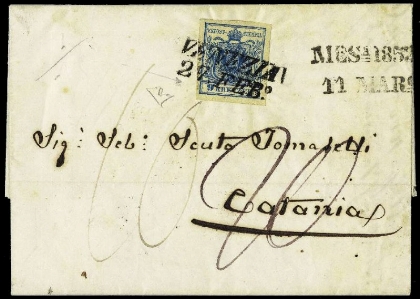 VENEZIA
27. FEB.º
MES.A 1853
11 MARS
Sig.r Seb.o Scuto Tomaselli
Catania